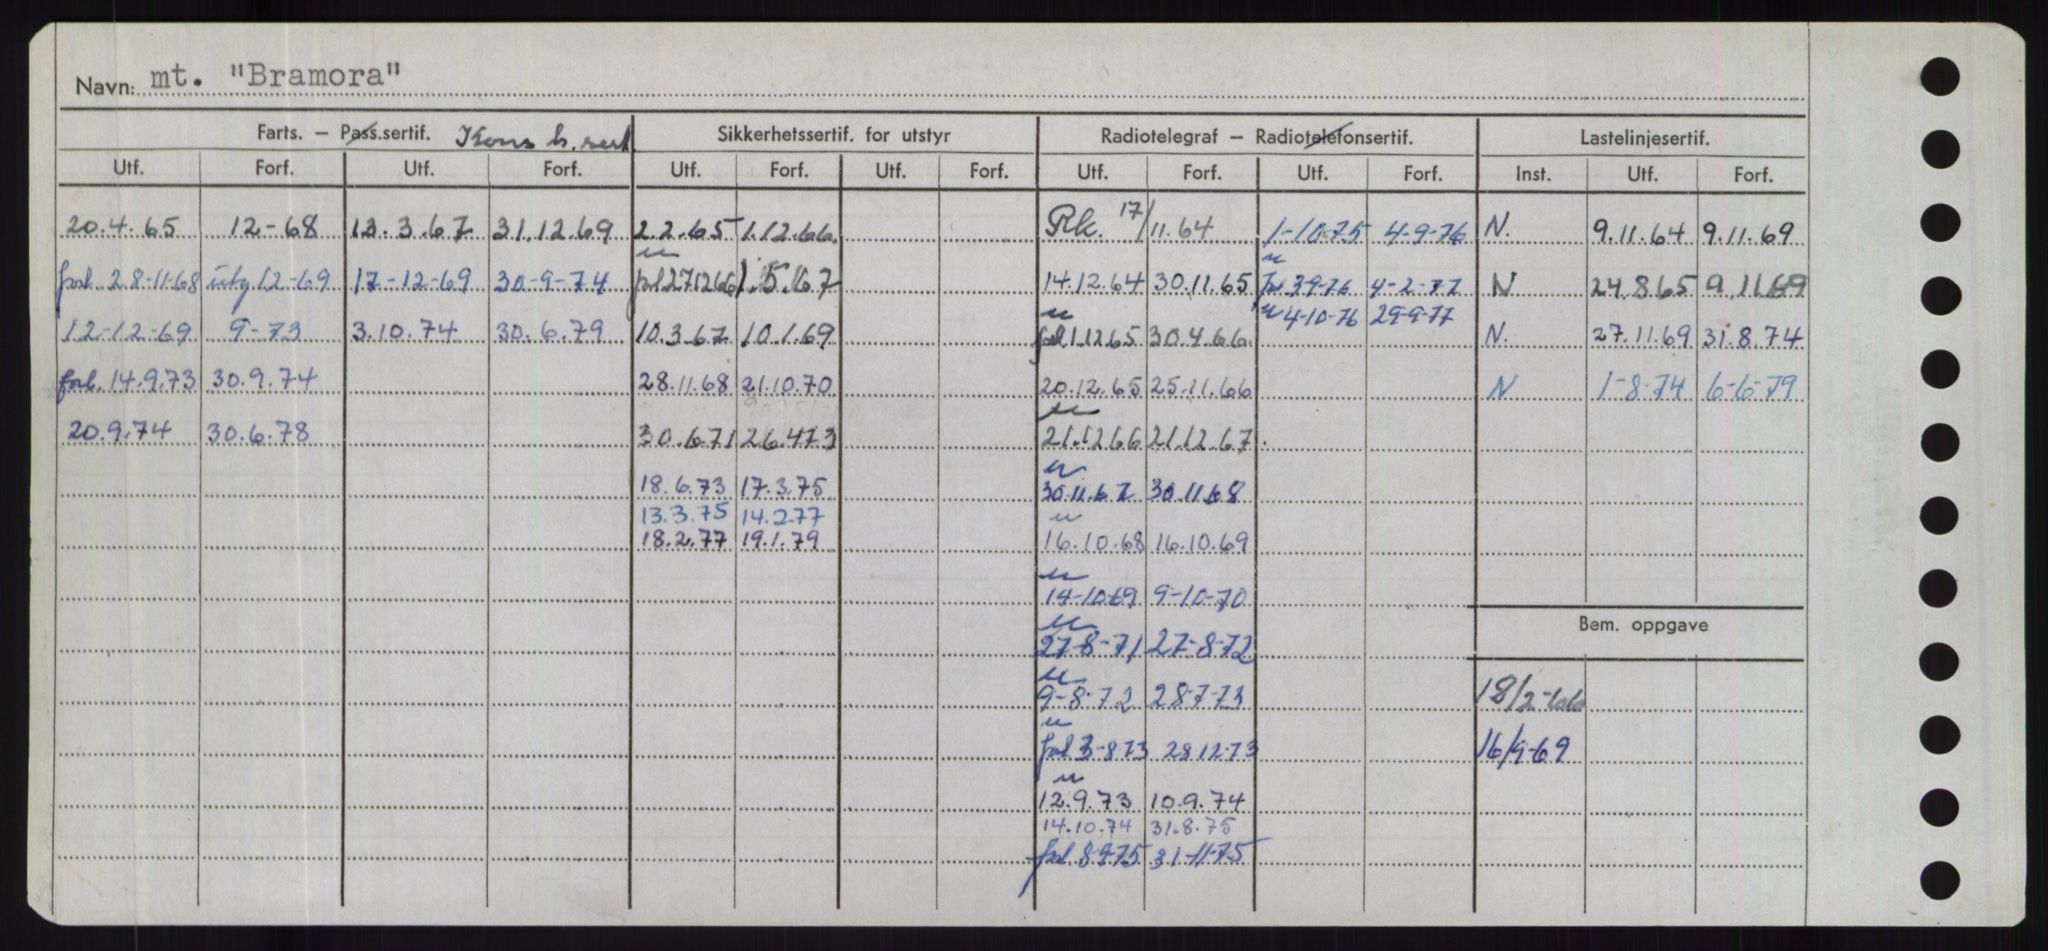 Navn: mt. "Bramora"
Farts. – Pass.sertif. Kons b. sert. Sikkerhetssertif. for utstyr Radiotelegraf – Radiotelefonsertif. Lastelinjesertif.
Utf. Forf. Utf. Forf. Utf. Forf. Utf. Forf. Utf. Forf. Utf. Forf. Inst. Utf. Forf.
20.4.65 12-68 13.3.67 31.12.69 2.2.65 1.12.66. Rk. 17/11.64 1-10-75 4-9-76 N. 9.11.64 9.11.69
forl. 28-11-68 utg 12-69 17-12-69 30-9-74 forl 271266 1.5.67 14.12.64 30.11.65 for 3-9-76 4-2-77 N 24.8.65 9.11.69
u 4-10-76 29-9-77
12-12-69 9-73 3.10.74 30.6.79 10.3.67 10.1.69 forl 1.12.65 30.4.66. N. 27.11.69 31.8.74
forl. 14.9.73 30.9.74 28.11.68 21.10.70 20.12.65 25.11.66 N 1-8-74 6-6-79
20.9.74 30.6.78 30.6.71 26.4.73 21.12.66 21.12.67.
18.6.73 17.3.75 30.11.67 30.11.68
13.3.75 14.2.77
18.2.77 19.1.79 16.10.68 16.10.69
14-10-69 9-10-70
Bem. oppgave
27-8-71 27-8-72
9-8-72 28-7-73 18/2-66
forl 3-8-73 28.12-73 16/9-69
12.9.73 10.9.74
14.10.74 31.8.75
forl. 8-9-75 31-11-75